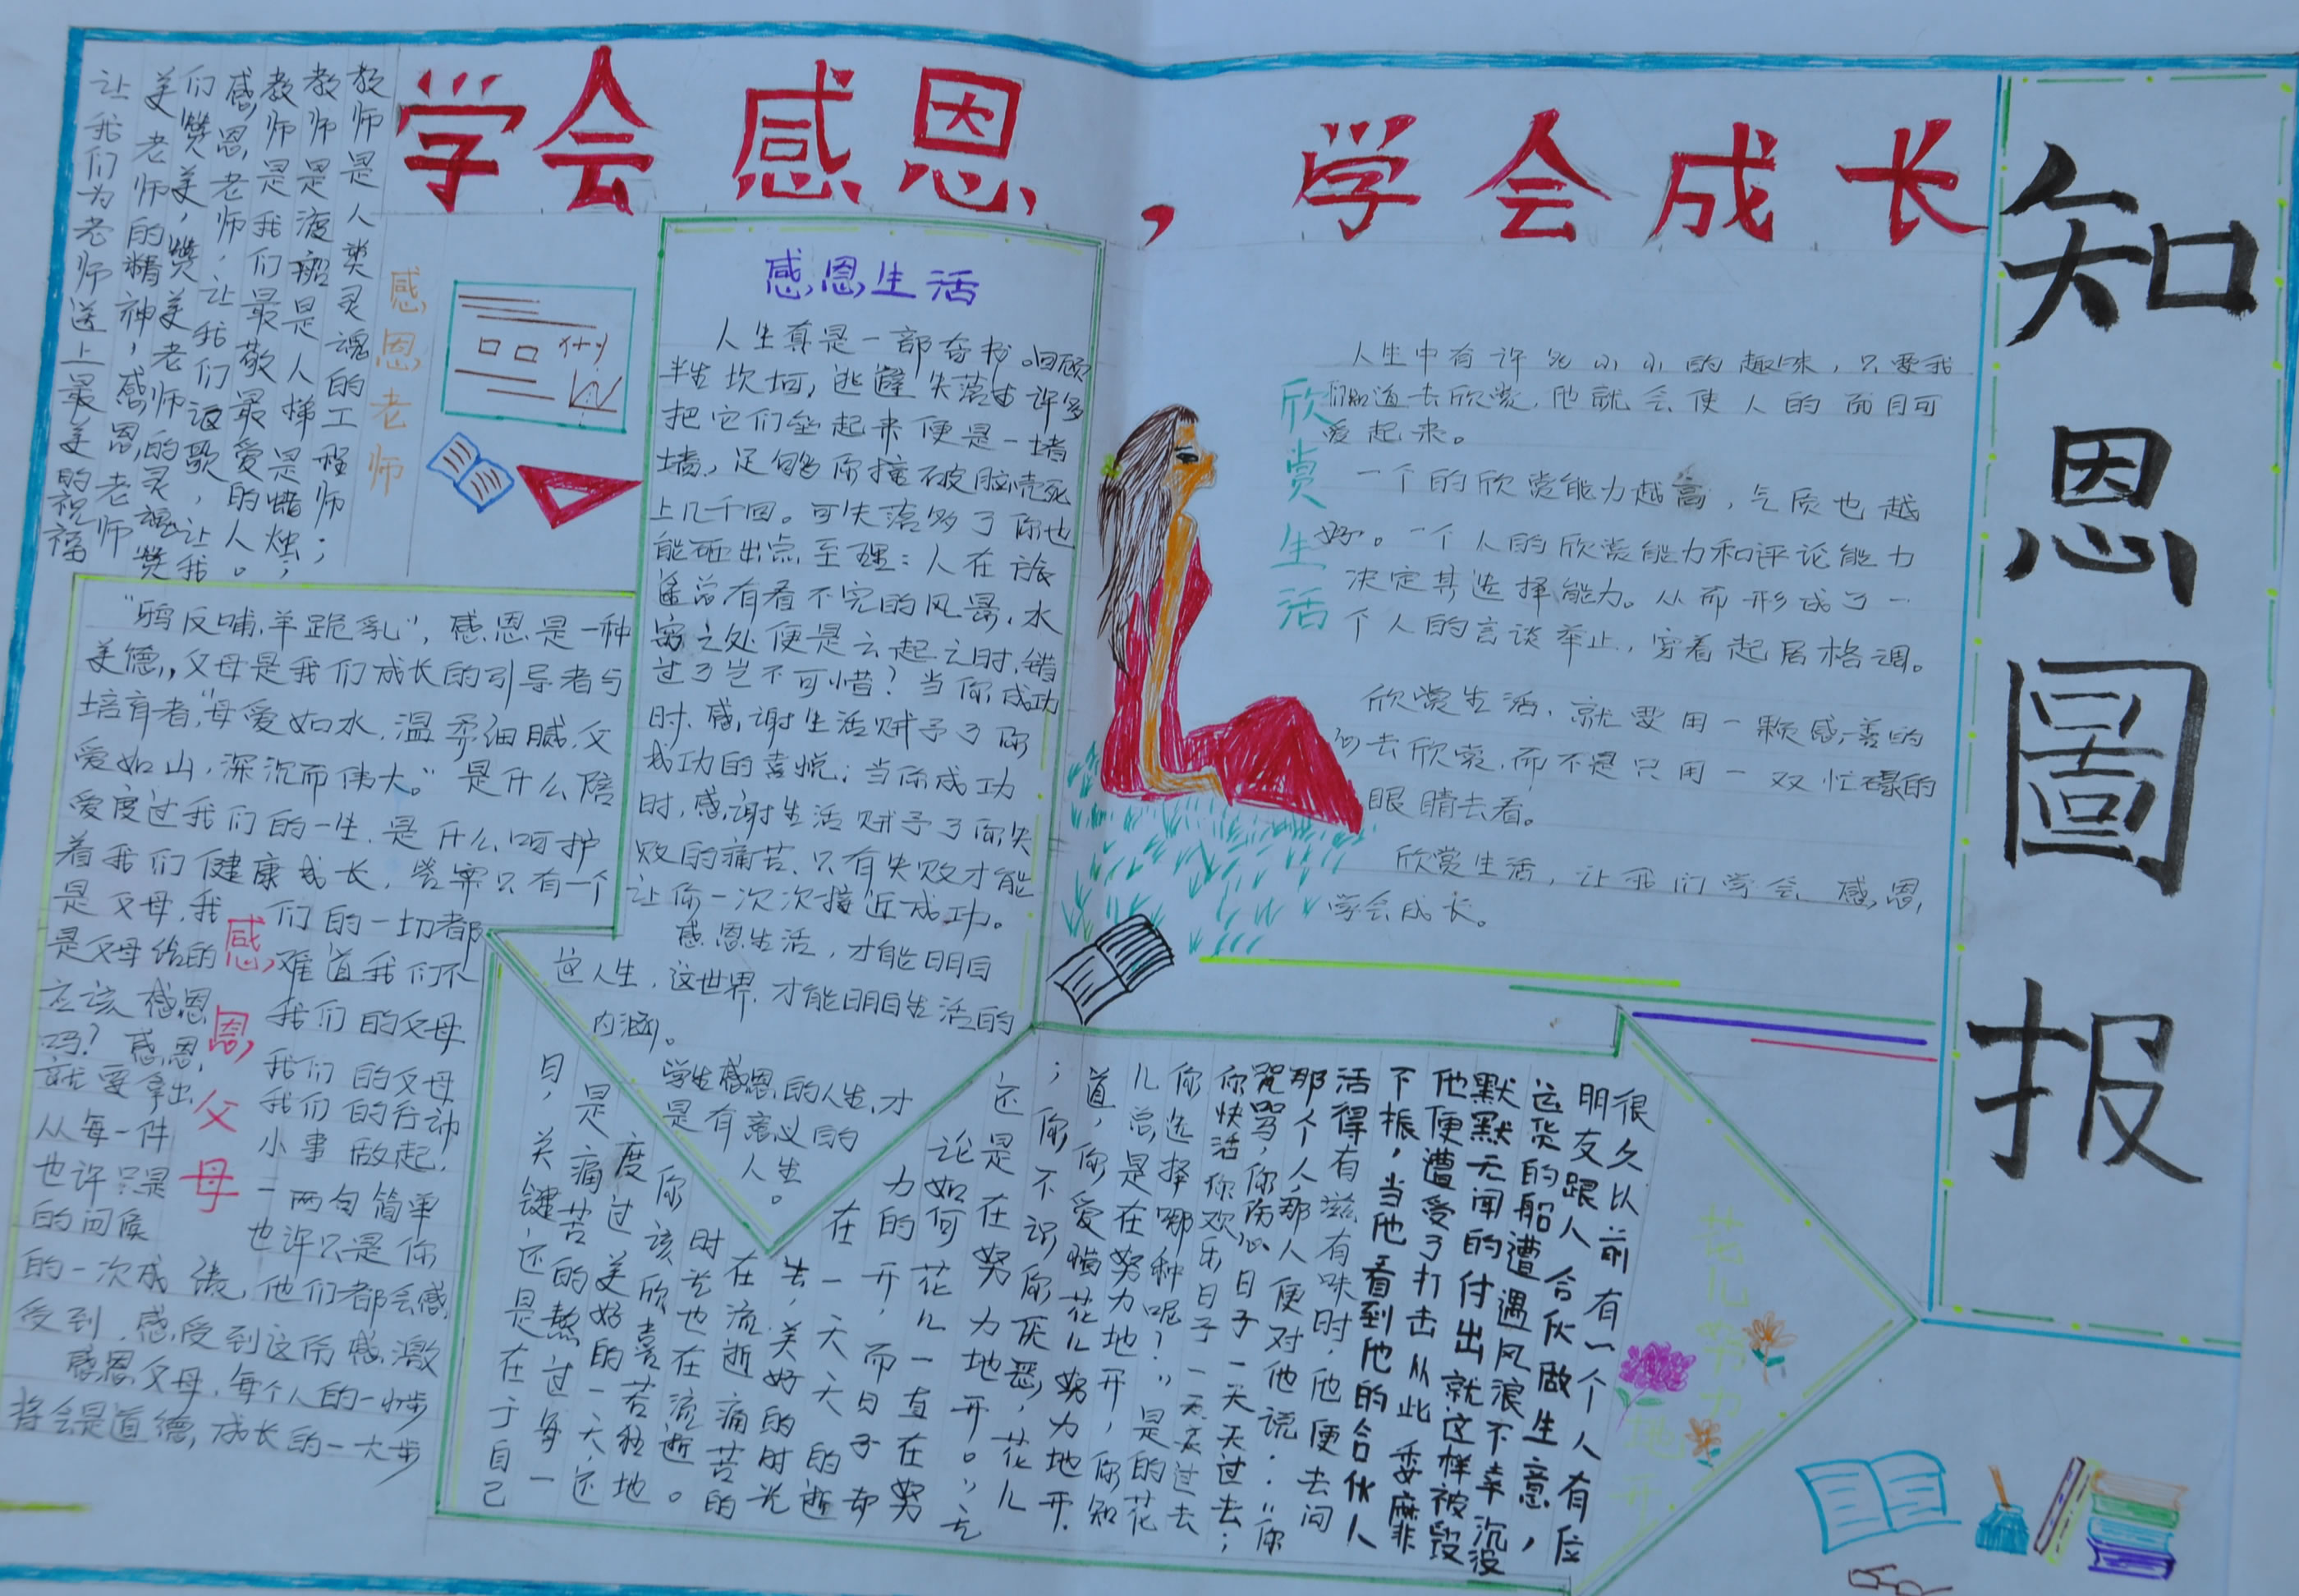 学会感恩，学会成长
知恩圖报
感恩老师
教师是人类灵魂的工程师；
教师是渡船是人梯是蜡烛；
教师是我们最敬最爱的人。
感恩老师，让我们讴歌，让我
们赞美，赞美老师的灵魂赞
美老师的精神，感恩老师
让我们为老师送上最美的祝福
感恩生活
人生真是一部奇书。回顾
半生坎坷，逃避失落由许多
把它们垒起来便是一堵
墙，足够你撞破脑壳死
上几千回。可失落多了你也
能砸出点至理：人在旅
途总有看不完的风景，水
穷之处便是云起之时，错
过了岂不可惜？当你成功
时，感谢生活赋予了你
成功的喜悦；当你成功
时，感谢生活赋予了你失
败的痛苦，只有失败才能
让你一次次接近成功。
感恩生活，才能明白
这人生，这世界，才能明白生活的
内涵。
学生感恩的人生，才
是有意义的
人生。
欣赏生活
人生中有许多小小的趣味，只要我
们知道去欣赏，他就会使人的面目可
爱起来。
一个的欣赏能力越高，气质也越
好。一个人的欣赏能力和评论能力
决定其选择能力。从而形成了一
个人的言谈举止，穿着起居格调。
欣赏生活，就要用一颗感善的
心去欣赏，而不是只用一双忙碌的
眼睛去看。
欣赏生活，让我们学会感恩，
学会成长。
感恩父母
“鸦反哺，羊跪乳”，感恩是一种
美德，父母是我们成长的引导者与
培育者，“母爱如水，温柔细腻，父
爱如山，深沉而伟大。”是什么陪
爱度过我们的一生，是什么呵护
着我们健康成长，答案只有一个
是父母，我们的一切都
是父母给的，难道我们不
应该感恩我们的父母
吗？感恩我们的父母
就要拿出我们的行动
从每一件小事做起，
也许只是一两句简单
的问候也许只是你
的一次成绩，他们都会感
受到，感受到这份感激
感恩父母，每个人的一小步
将会是道德，成长的一大步
花儿努力地开
很久以前有一个人有位
朋友跟人合伙做生意，
运货的船遭遇风浪不幸沉没
默默无闻的付出就这样被毁
他便遭受了打击从此委靡
下振，当他看到他的合伙人
活得有滋有味时，他便去问
那个人，那人便对他说：“你
咒骂，你伤心日子一天天过去；
你快活你欢乐日子一天天过去
你选择哪种呢？”是的花
儿总是在努力地开，你知
道，你爱惜花儿努力地开
；你不识你厌恶，花儿
还是在努力地开。”无
论如何花儿一直在努
力的开，而日子却
在一天天的逝
去，美好的时光
在流逝痛苦的
时光也在流逝。
你该欣喜若狂地
度过美好的一天，还
是痛苦的熬过每一
日，关键还是在于自己